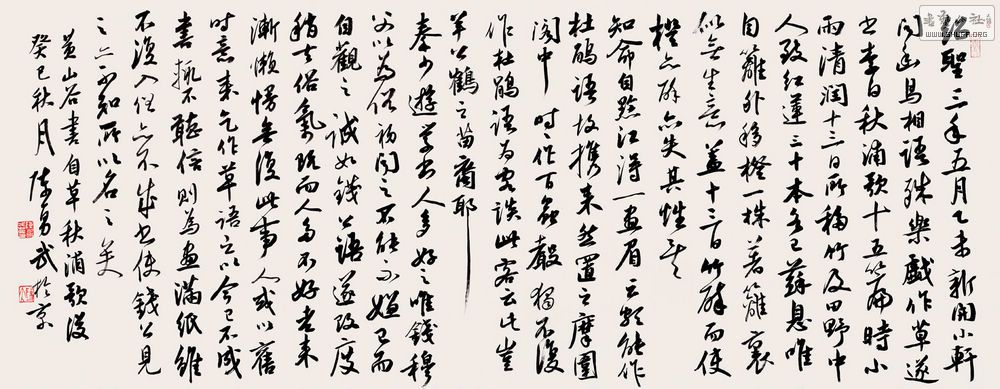 紹聖三年五月乙未新開小軒
聞幽鳥相語殊樂戲作草遂
書李白秋浦歌十五篇時小
雨清潤十三日所移竹及田野中
人致紅蓮三十本各已蘇息唯
自籬外移橙一株著籬裏
似無生意蓋十三日竹醉而使
橙亦醉亦失其性矣
知命自黔江得一畫眉云頗能作
杜鵑語故攜來然置之摩圍
閣中時作百蟲聲獨不復
作杜鵑語為客談此客云此豈
羊公鶴之苗裔耶
秦少遊學書人多好之唯錢穆
父以為俗初聞之不能不嫌已而
自觀之誠如錢公語遂改度
稍去俗氣既而人多不好老來
漸懶慢無復此事人或以舊
時意來乞作草語之以今已不成
書輒不聽信則為畫滿紙雖
不復入俗亦不成書使錢公見
之亦不知所以名之矣
黃山谷書自草秋浦歌後
癸巳秋月陳勇武於京